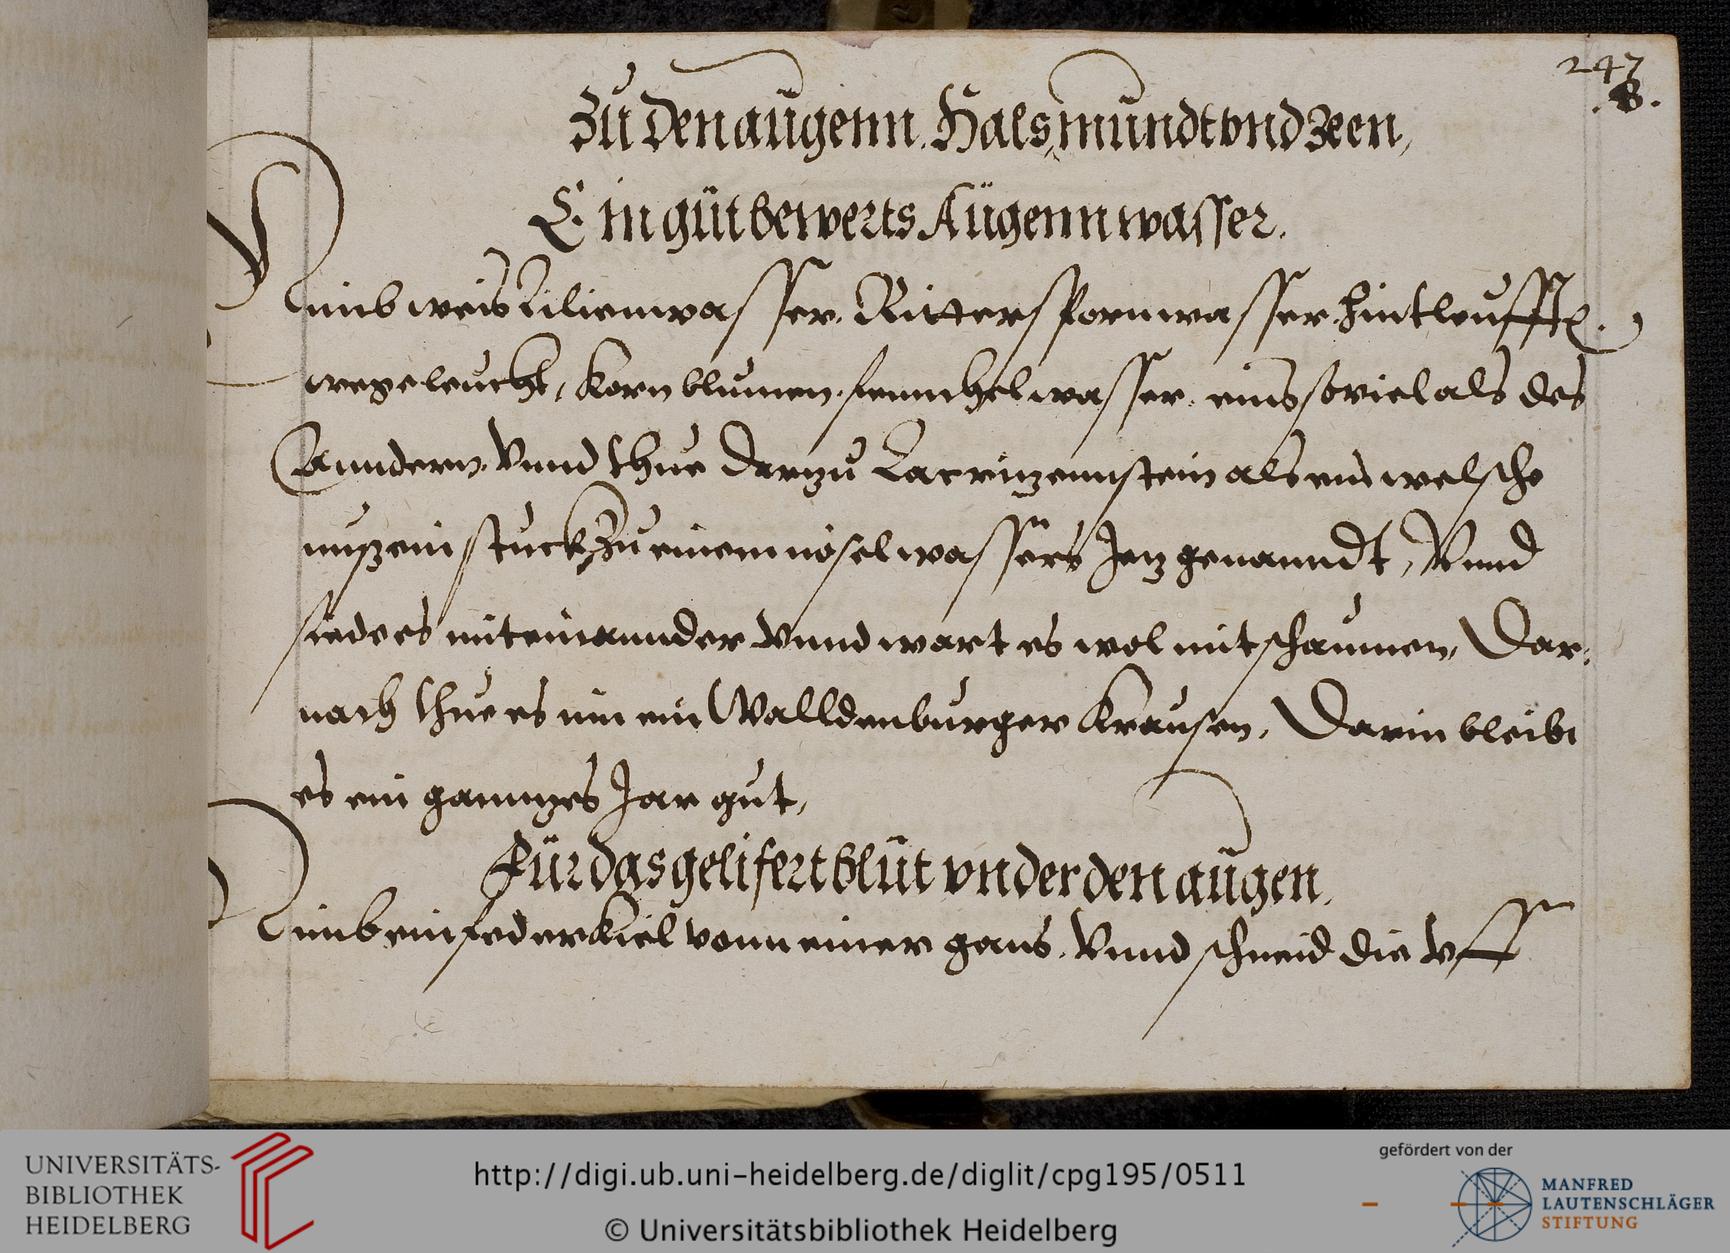 247
.B.
Zu den augenn. Hals, mundt vnd Zeen,
Ein gut bewerts Augenn wasser.
Nimb weis Lilienwasser. Ritterspornwasser. hintleufft.
wegeleucht, Kornblumen. fennchelwasser. eins soviel als des
Anndern. Vnnd thue darzu Lacrizennstein als ein welsche
nuß ein stuck, Zu einem nösel wassers Jenz genanndt, Vnnd
siede es miteinannder Vnnd wart es wol mit schaumen, Dar:
nach thue es inn ein Walldenburger Krausen, Darin bleibt
es ein gannzes Jar gut,
Für das gelifert blut vnder den augen.
Nimb ein federkiel vonn einer gans. Vnnd schneid die vff
UNIVERSITÄTS-
BIBLIOTHEK
HEIDELBERG
http://digi.ub.uni-heidelberg.de/diglit/cpg195/0511
© Universitätsbibliothek Heidelberg
gefördert von der
MANFRED
LAUTENSCHLÄGER
STIFTUNG